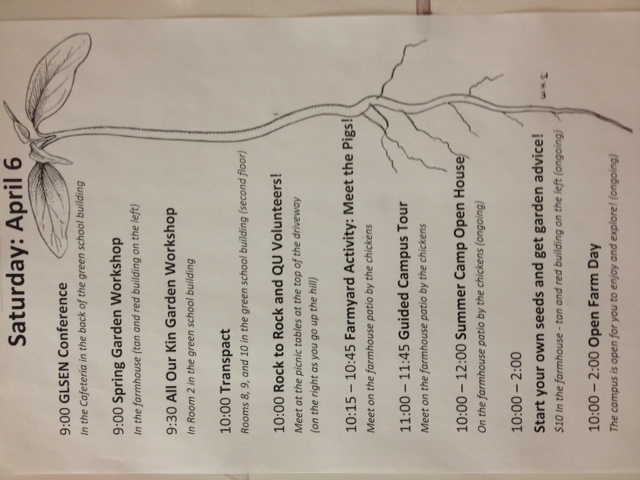 Saturday: April 6
9:00 GLSEN Conference
In the Cafeteria in the back of the green school building
9:00 Spring Garden Workshop
In the farmhouse (tan and red building on the left)
9:30 All Our Kin Garden Workshop
In Room 2 in the green school building
10:00 Transpact
Rooms 8, 9, and 10 in the green school building (second floor)
10:00 Rock to Rock and QU Volunteers!
Meet at the picnic tables at the top of the driveway
(on the right as you go up the hill)
10:15 – 10:45 Farmyard Activity: Meet the Pigs!
Meet on the farmhouse patio by the chickens
11:00 – 11:45 Guided Campus Tour
Meet on the farmhouse patio by the chickens
10:00 – 12:00 Summer Camp Open House
On the farmhouse patio by the chickens (ongoing)
10:00 – 2:00
Start your own seeds and get garden advice!
$10 In the farmhouse - tan and red building on the left (ongoing)
10:00 – 2:00 Open Farm Day
The campus is open for you to enjoy and explore! (ongoing)